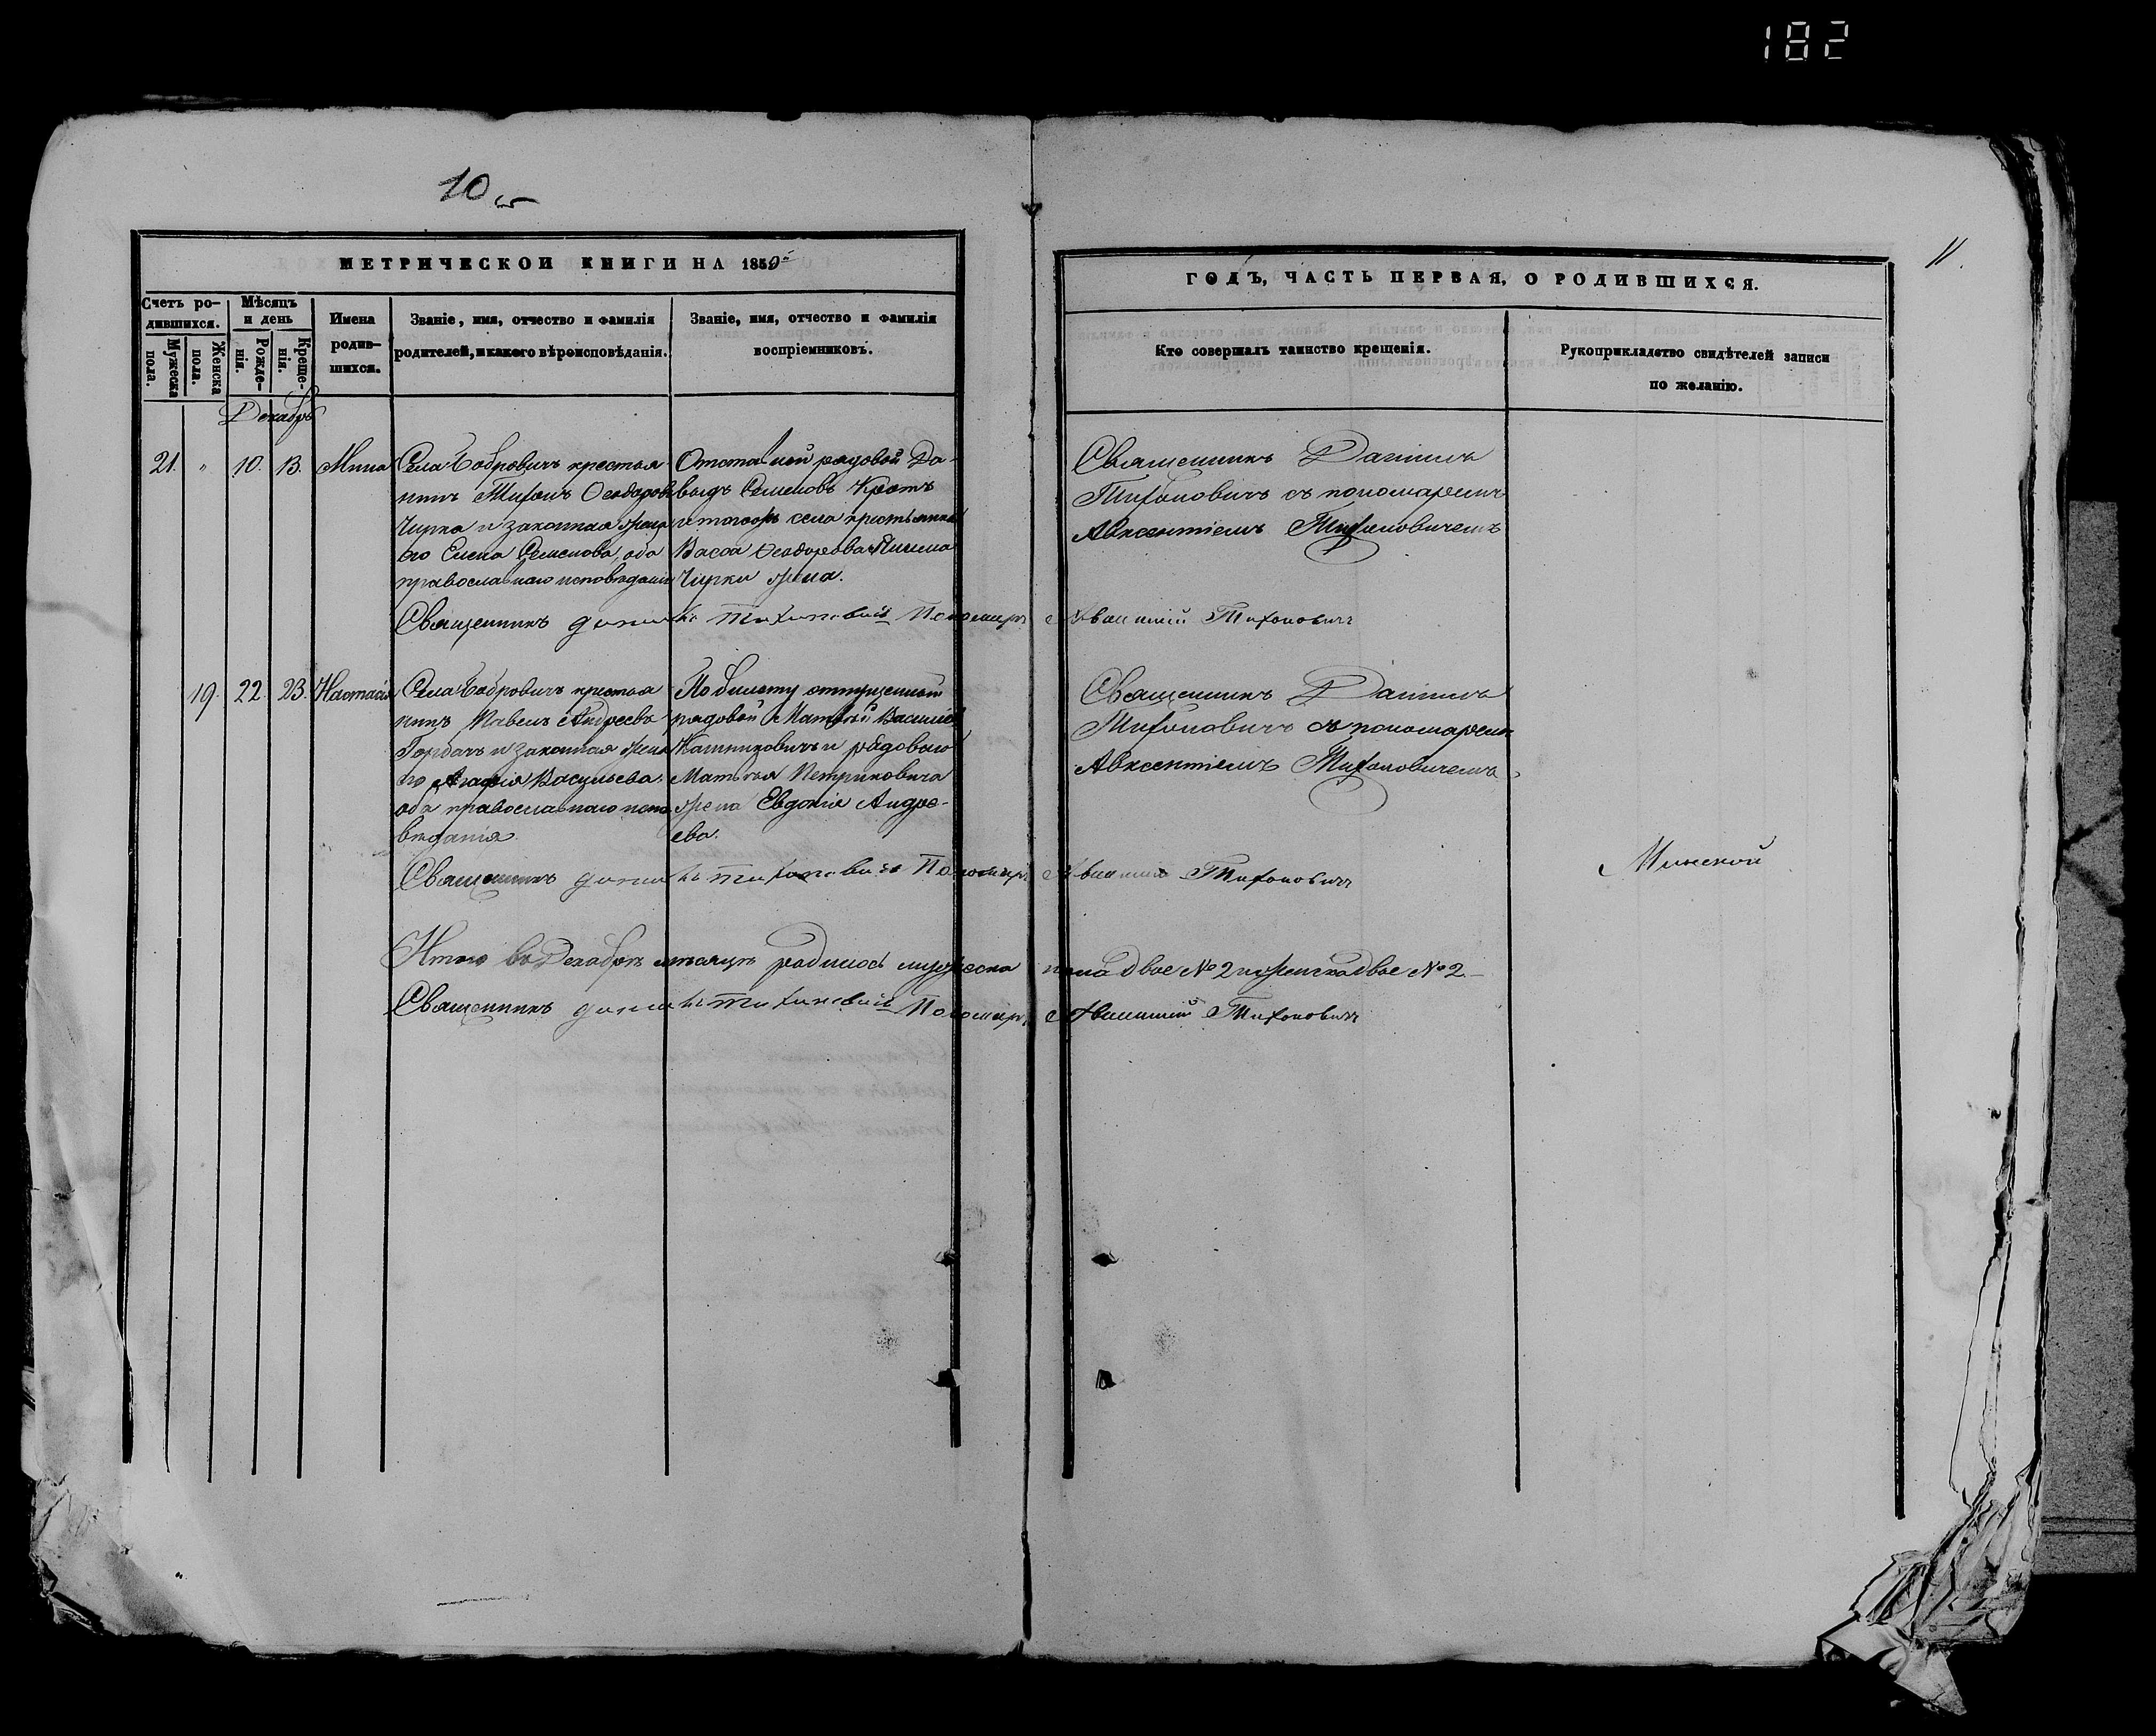 182
10
11.
МЕТРИЧЕСКОЙ КНИГИ НА 1850й
ГОДЪ, ЧАСТЬ ПЕРВАЯ, О РОДИВШИХСЯ.
Счетъ ро-
дившихся.
Мужеска
пола.
Женска
пола.
Мѣсяцъ
и день
Рожде-
нія.
Креще-
нія.
Имена
родив-
шихся.
Званіе, имя, отчество и фамилія
родителей, и какого вѣроисповѣданія.
Званіе, имя, отчество и фамилія
воспріемниковъ.
Кто совершалъ таинство крещенія.
Рукоприкладство свидѣтелей записи
по желанію.
Декабрь
21. " 10. 13. Мина
Села Бобровичъ крестья-
нинъ Тихонъ Ѳеодоровъ
Чирка и законная жена
его Елена Семенова, оба
православнаго исповѣданія
Отставной рядовой Да-
выдъ Семеновъ Кротъ
и тогожъ села крестьянина
Васса Ѳеодорова
Чирки жена.
Священникъ Даніилъ
Тихоновичъ съ пономаремъ
Авксентіемъ Тихоновичемъ
Священникъ Даніилъ Тихоновичъ Пономарь Авксентій Тихоновичъ
19. 22. 23. Настасія
Села Бобровичъ крестья-
нинъ Павелъ Андреевъ
Горбачъ и законная жена
его Агафія Васильева,
оба православнаго испо-
вѣданія.
По билету отпущенный
рядовой Матвѣй Василіевъ
и рядового
Матвѣя Петриковича
жена Евдокія Андре-
ева.
Священникъ Даніилъ
Тихоновичъ съ пономаремъ
Авксентіемъ Тихоновичемъ
Минской
Священникъ Даніилъ Тихоновичъ Пономарь Авксентій Тихоновичъ
Итого въ Декабрѣ мѣсяцѣ родилось мужеска пола двое № 2 и женска двое № 2.
Священникъ Даніилъ Тихоновичъ Пономарь Авксентій Тихоновичъ